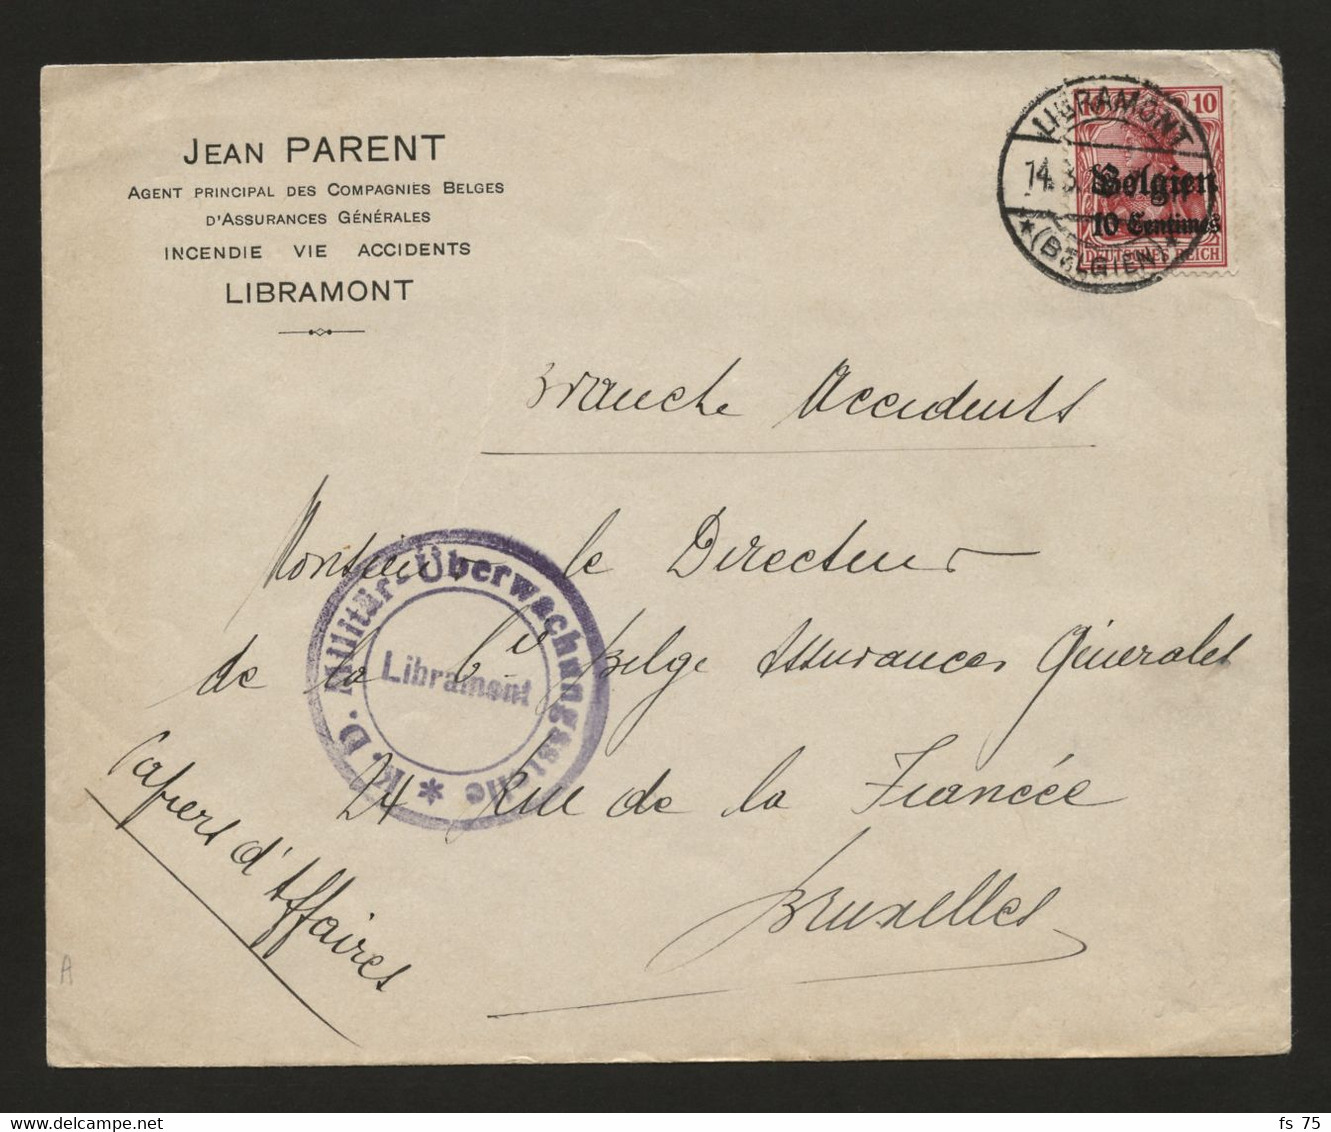 JEAN PARENT
AGENT PRINCIPAL DES COMPAGNIES BELGES
D'ASSURANCES GÉNÉRALES
INCENDIE VIE ACCIDENTS
LIBRAMONT
10
LIBRAMONT
14.3.
Belgien
10 Centimes
(BELGIEN)
DEUTSCHES REICH
Branche Accidents
Monsieur le Directeur
de la Cie Belge Assurances Générales
24 Rue de la Fiancée
Bruxelles
Papiers d'Affaires
K. D. Militär-Überwachungsstelle *
Libramont
A
fs 75